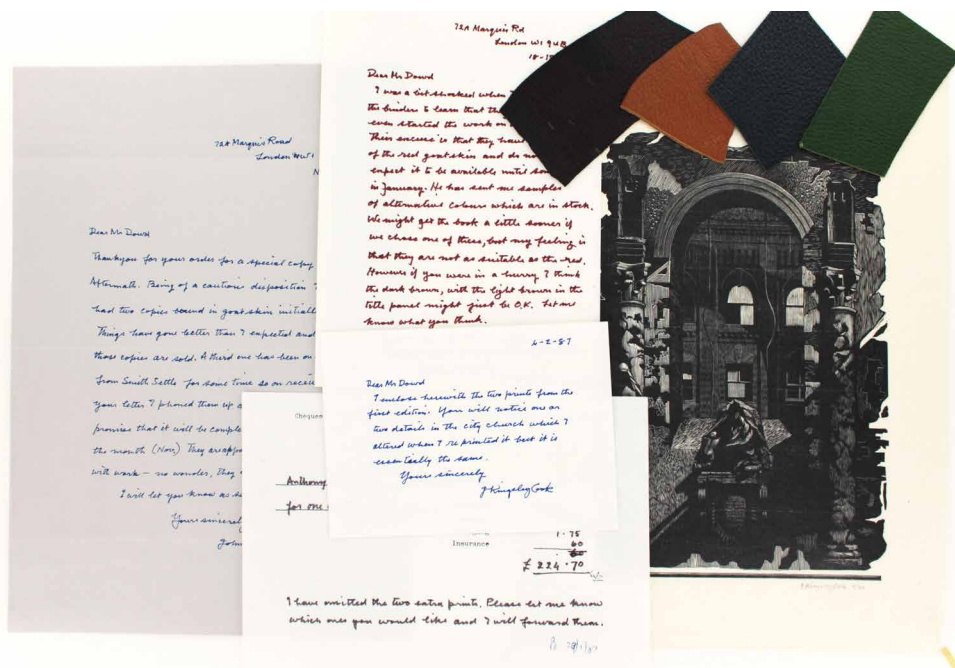 72A Marquis Road
London NW1
N
Dear Mr Dowd
Thankyou for your order for a special copy
Aftermath. Being of a cautious disposition I
had two copies bound in goatskin initiall
Things have gone better than I expected and
those copies are sold. A third one has been on
from Smith Settle for some time so on recei
your letter I phoned them up a
promise that it will be comple
the month (Nov) They are appa
with work – no wonder, they
I will let you know as so
Yours sincerel
John
72A Marquis Rd
London W1 9UB
18-
Dear Mr Dowd
I was a bit shocked when I
the binders to learn that the
even started the work on
Their excuse is that they have
of the red goatskin and do no
expect it to be available until som
in January. He has sent me samples
of alternative colours which are in stock.
We might get the book a little sooner if
we chose one of these, but my feeling is
that they are not as suitable as the red.
However if you were in a hurry I think
the dark brown, with the light brown in the
title panel might just be O.K. Let me
know what you think.
4-2-87
Dear Mr Dowd
I enclose herewith the two prints from the
first edition. You will notice one or
two details in the city church which I
altered when I reprinted it but it is
essentially the same.
Yours sincerely
J Kingsley Cook
Cheques
Anthony
for one
1.75
Insurance 60
£ 224.70
I have omitted the two extra prints. Please let me know
which ones you would like and I will forward them.